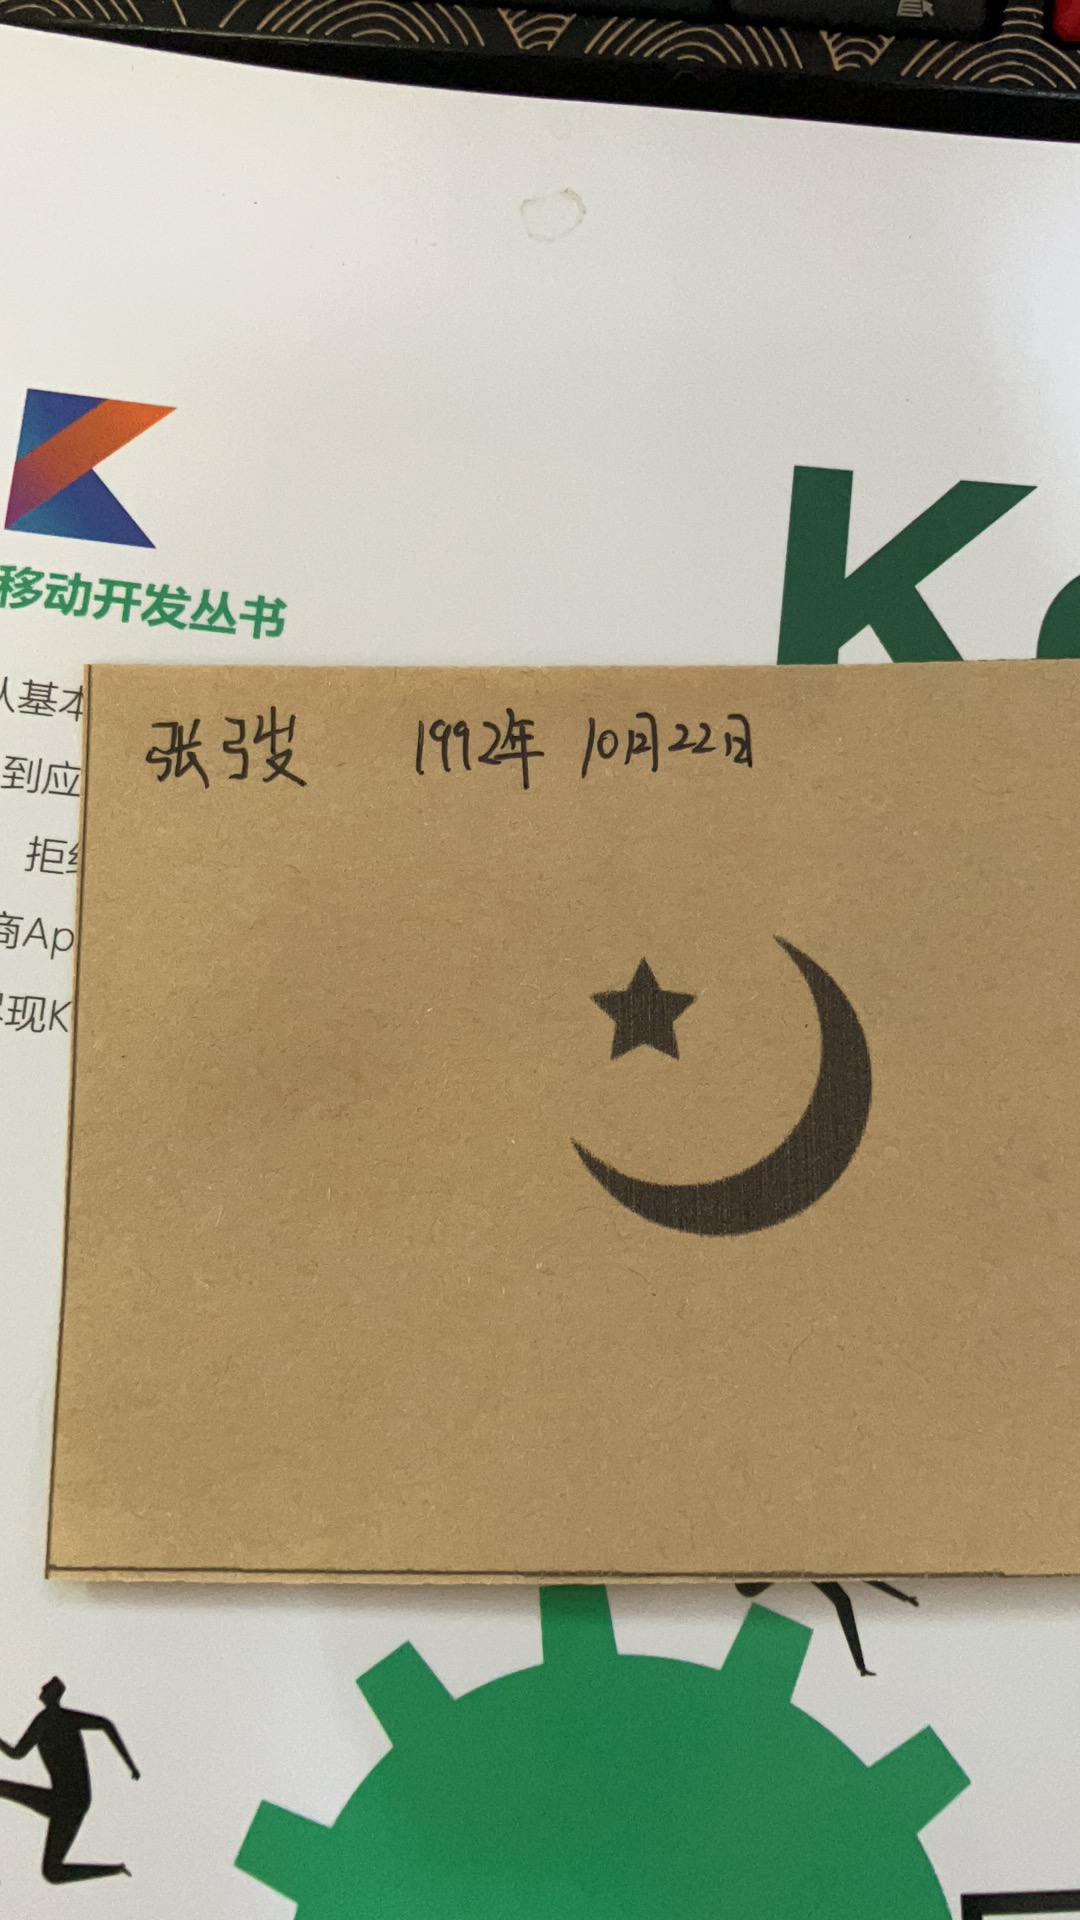 移动开发丛书
K
基本
到应
拒
商Ap
现K
张弢 1992年 10月22日